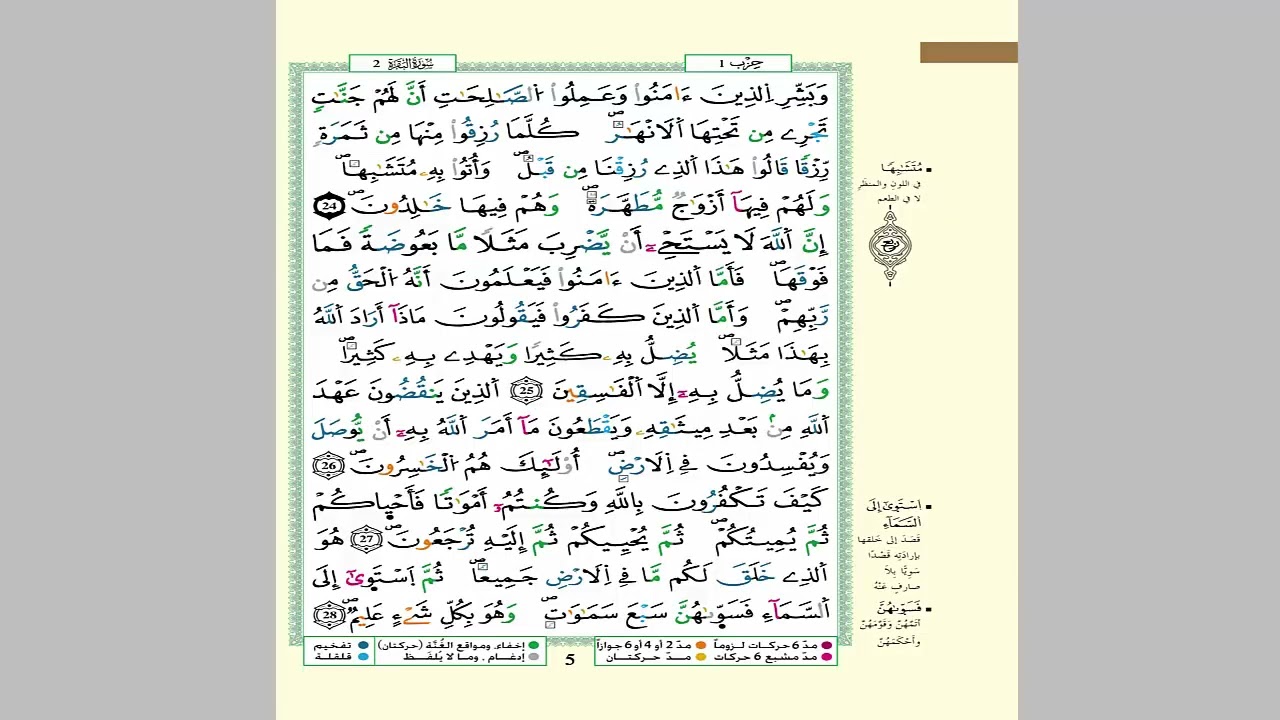 حِزْب 1
سُورَةُ البَقَرَةِ 2
وَبَشِّرِ اِ۬لذِينَ ءَامَنُواْ وَعَمِلُواْ اُ۬لصَّٰلِحَٰتِ أَنَّ لَهُمْ جَنَّٰتٖ
تَجْرِے مِن تَحْتِهَا اَ۬لَانْهَٰرُۖ كُلَّمَا رُزِقُواْ مِنْهَا مِن ثَمَرَةٖ
رِّزْقاٗ قَالُواْ هَٰذَا اَ۬لذِے رُزِقْنَا مِن قَبْلُۖ وَأُتُواْ بِهِۦ مُتَشَٰبِهاٗۖ
وَلَهُمْ فِيهَآ أَزْوَٰجٞ مُّطَهَّرَةٞۖ وَهُمْ فِيهَا خَٰلِدُونَۖ 24
إِنَّ اَ۬للَّهَ لَا يَسْتَحْيِۦٓ أَنْ يَّضْرِبَ مَثَلاٗ مَّا بَعُوضَةٗ فَمَا
فَوْقَهَاۖ فَأَمَّا اَ۬لذِينَ ءَامَنُواْ فَيَعْلَمُونَ أَنَّهُ اُ۬لْحَقُّ مِن
رَّبِّهِمْۖ وَأَمَّا اَ۬لذِينَ كَفَرُواْ فَيَقُولُونَ مَاذَآ أَرَادَ اَ۬للَّهُ
بِهَٰذَا مَثَلاٗۖ يُضِلُّ بِهِۦ كَثِيراٗ وَيَهْدِے بِهِۦ كَثِيراٗۖ
وَمَا يُضِلُّ بِهِۦٓ إِلَّا اَ۬لْفَٰسِقِينَ 25 اَ۬لذِينَ يَنقُضُونَ عَهْدَ
اَ۬للَّهِ مِنۢ بَعْدِ مِيثَٰقِهِۦ وَيَقْطَعُونَ مَآ أَمَرَ اَ۬للَّهُ بِهِۦٓ أَنْ يُّوصَلَ
وَيُفْسِدُونَ فِے اِ۬لَارْضِۖ أُوْلَٰٓئِكَ هُمُ اُ۬لْخَٰسِرُونَۖ 26
كَيْفَ تَكْفُرُونَ بِاللَّهِ وَكُنتُمُۥٓ أَمْوَٰتاٗ فَأَحْيٰاكُمْ
ثُمَّ يُمِيتُكُمْۖ ثُمَّ يُحْيِيكُمْ ثُمَّ إِلَيْهِ تُرْجَعُونَۖ 27 هُوَ
اَ۬لذِے خَلَقَ لَكُم مَّا فِے اِ۬لَارْضِ جَمِيعاٗۖ ثُمَّ اَ۪سْتَوَىٰٓ إِلَى
اَ۬لسَّمَآءِ فَسَوّٰىٰهُنَّ سَبْعَ سَمَٰوَٰتٖۖ وَهُوَ بِكُلِّ شَےْءٍ عَلِيمٞۖ 28
مُتَشَٰبِهاً
في اللون والمنظَرِ
لا في الطعم
ربع
اِسْتَوىٰٓ إِلَى
اَلسَّمَآءِ
قَصَدَ إلى خَلقها
بإرادَتِه قَصْدًا
سَوِيًّا بِلاَ
صارفٍ عَنْهُ
فَسَوّٰىٰهُنَّ
أتمّهُنّ وَقَوّمَهُنّ
وأَحْكَمَهُنّ
مدّ 6 حركات لـزوماً مدّ 2 أو 4 أو 6 جوازاً
مدّ مشبع 6 حركات مــدّ حـركتــان
5
إخفاء، ومواقع الغُنَّة (حركتان) تفخيم
إدغـام ، ومـا لا يُلفَـظ قلقلة